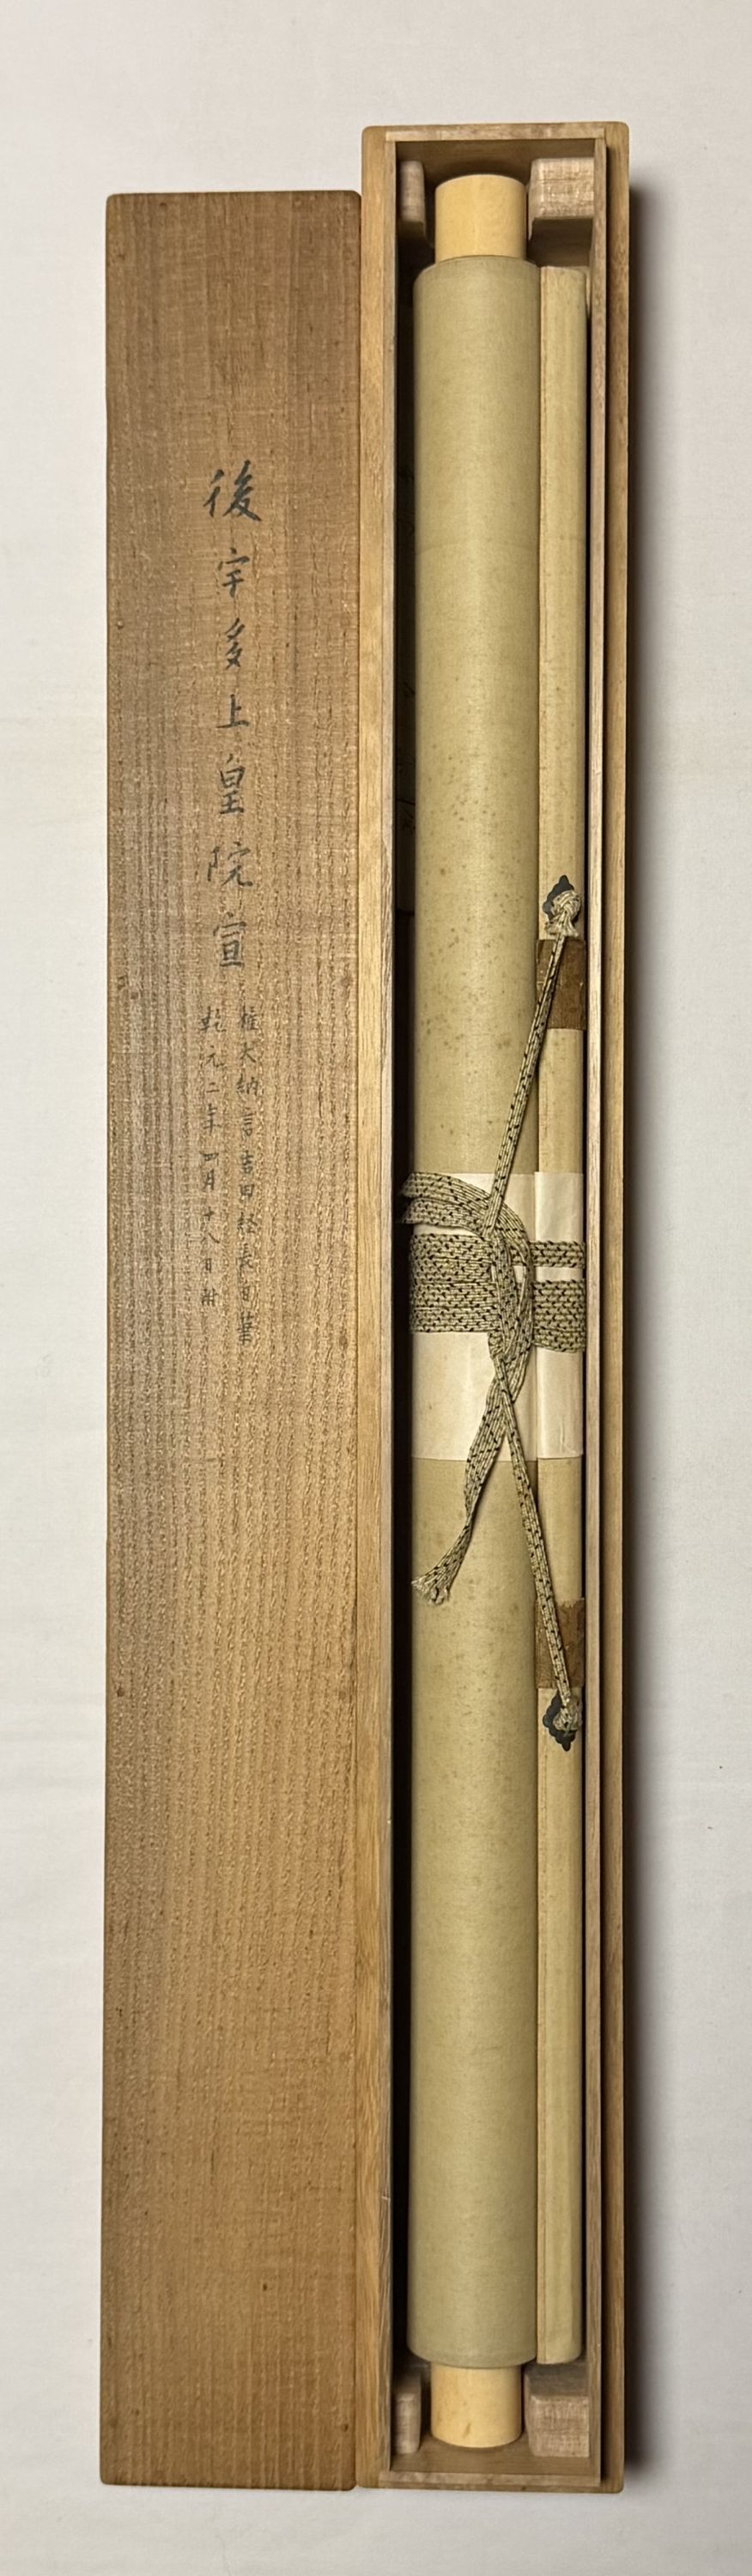 後宇多上皇院宣
権大納言吉田経長自筆
乾元二年四月十八日附